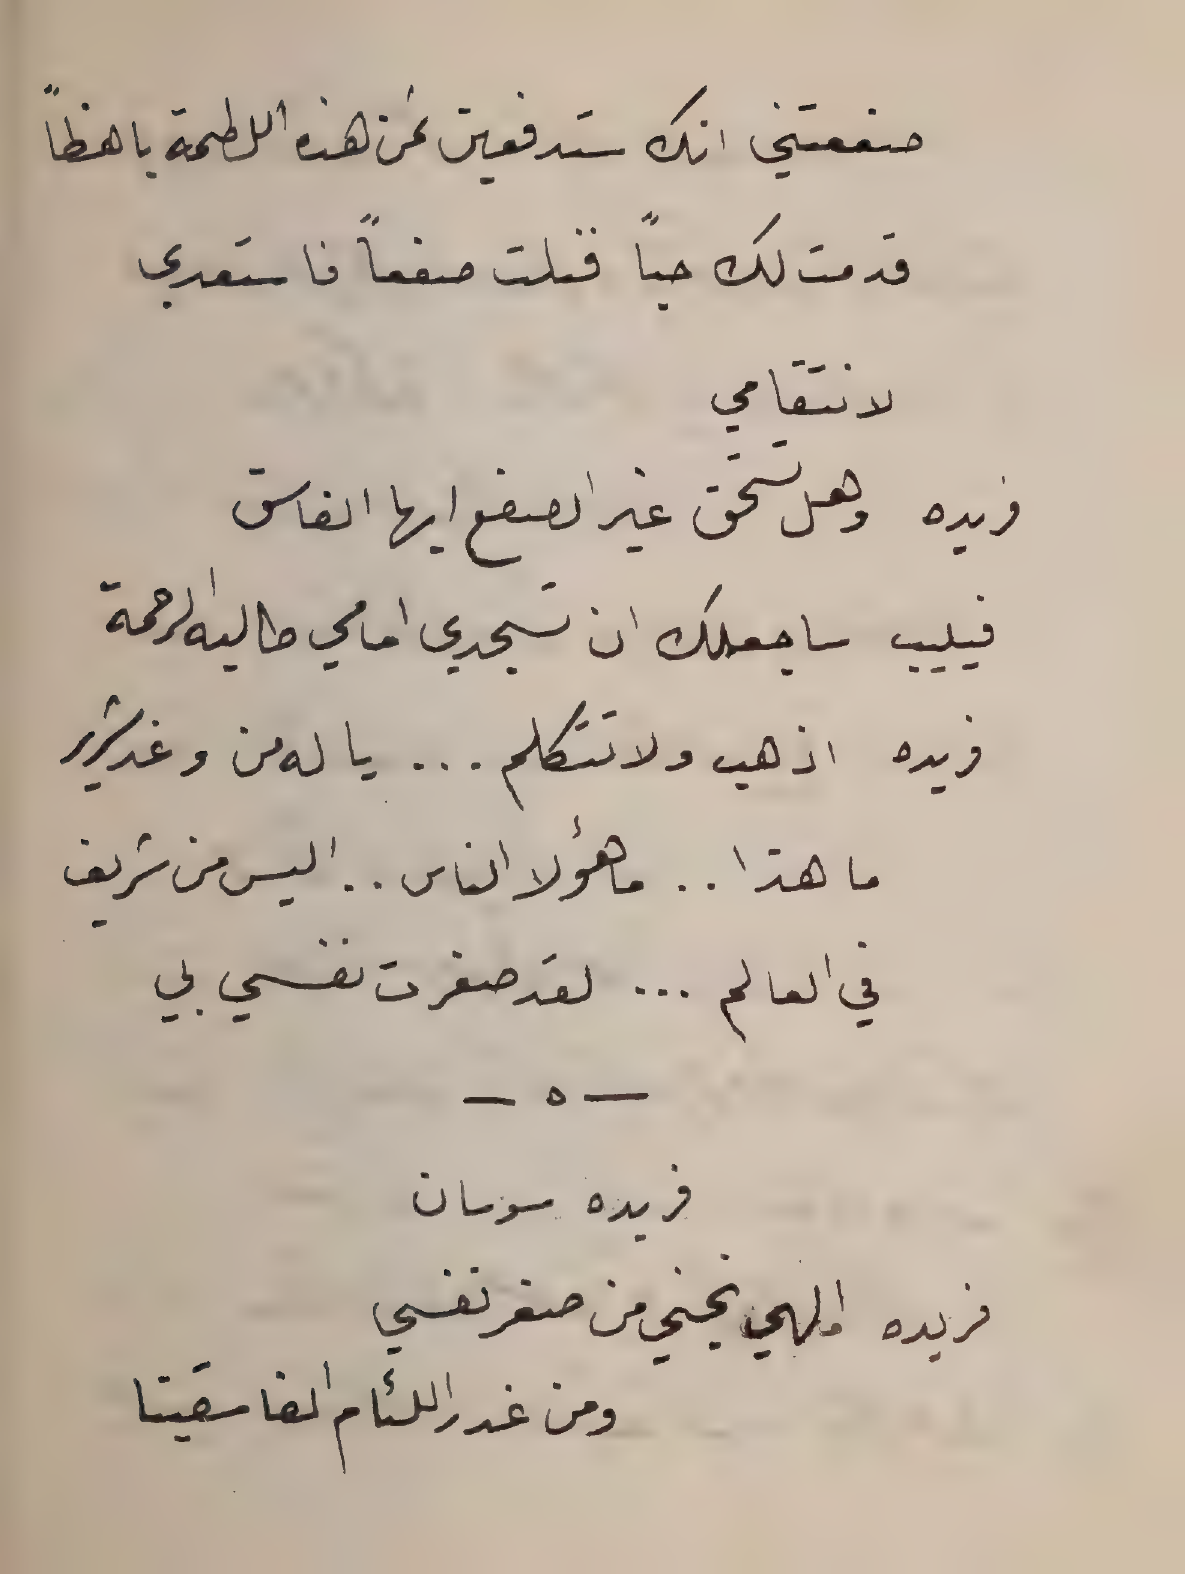 صفعتني انك ستدفعين ثمن هذه اللطمة باهظاً
قدمت لك حباً قنلت صفعاً فاستعدي
لانتقامي
فريده وهل تستحق غير الصفع ايها الفاسق
فيليب ساجعلك ان تسجدي امامي طالبه الرحمة
فريده اذهب ولا تتكلم ... يا له من وغد شرير
ما هذا .. ما هؤلا الناس .. اليس من شريف
في العالم ... لقد صغرت نفسي بي
— ٥ —
فريده سوسان
فريده الهي نجني من صغر نفسي
ومن غدر اللئام الفاسقينا